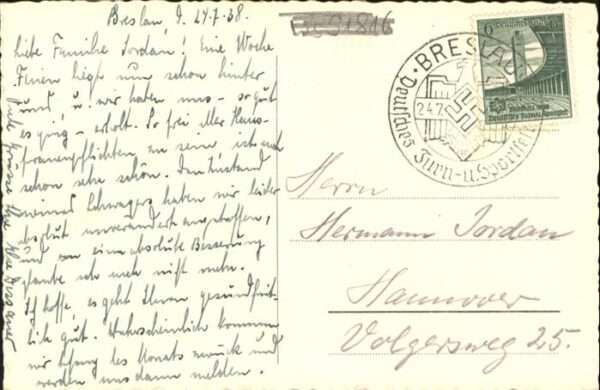 Breslau, d. 24.7.38.
Liebe Familie Jordan! Eine Woche
Ferien liegt nun schon hinter
uns, u. wir haben uns - so gut
es ging - erholt. So frei aller Haus-
frauenpflichten zu sein ist auch
schon sehr schön. Den Zustand
meines Schwagers haben wir leider
absolut unverändert angetroffen,
und an eine absolute Besserung
glaube ich auch nicht mehr.
Ich hoffe, es geht Ihnen gesundheit-
lich gut. Wahrscheinlich kommen
wir Anfang des Monats zurück und
werden uns dann melden.
Viele Grüsse Ihre
91816
BRESLAU
24.7.
Deutsches Turn- u. Sportfest
6
Herrn
Hermann Jordan
Hannover
Volgersweg 25.